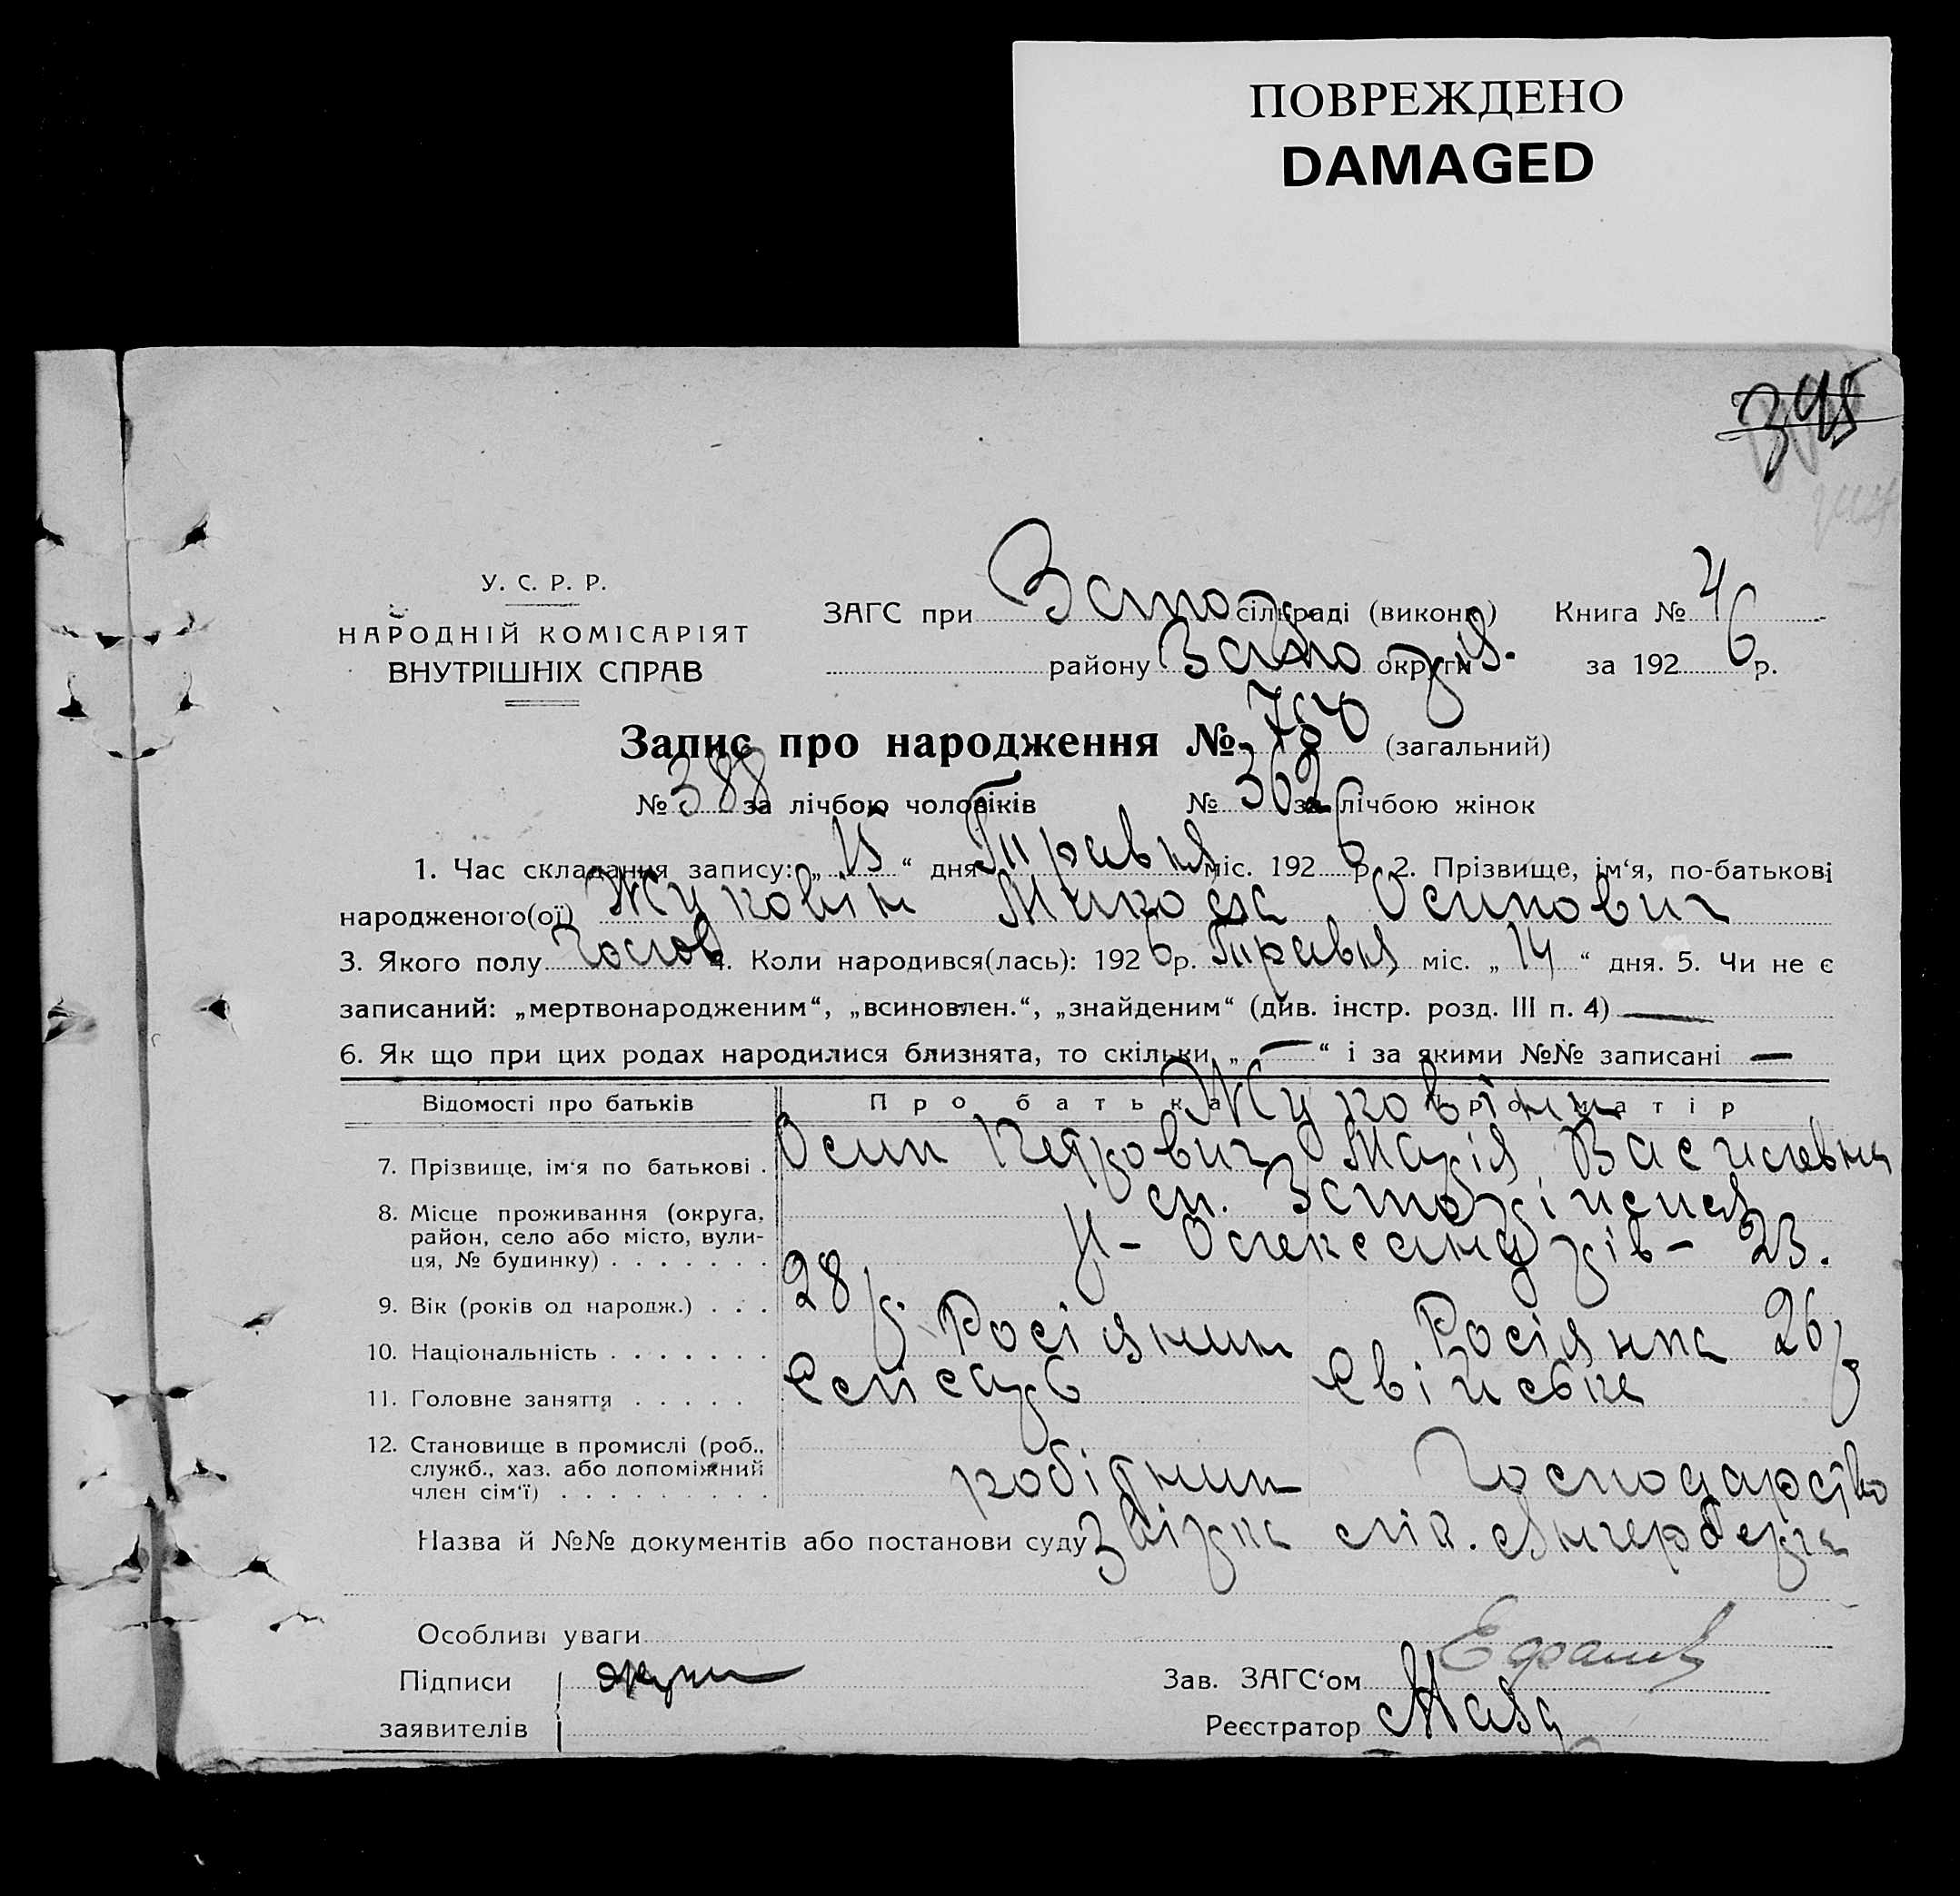 ПОВРЕЖДЕНО
DAMAGED
395
У. С. Р. Р.
НАРОДНІЙ КОМІСАРІЯТ
ВНУТРІШНІХ СПРАВ
ЗАГС при сільраді (виконк) Книга № 4
району округи за 1926 р.
Запис про народження № 750 (загальний)
№ 388 за лічбою чоловіків № 362 за лічбою жінок
1. Час складання запису: „15“ дня Травня міс. 1926 р. 2. Прізвище, ім‘я, по-батькові
народженого(ої) Жуковін Микола Осипович
3. Якого полу Чолов 4. Коли народився(лась): 1926 р. Травня міс. „14“ дня. 5. Чи не є
записаний: „мертвонародженим“, „всиновлен.“, „знайденим“ (див. інстр. розд. III п. 4) —
6. Як що при цих родах народилися близнята, то скільки „—“ і за якими №№ записані —
Відомості про батьків Про батька Про матір
Жуковіни
7. Прізвище, ім‘я по батькові . Осип Петрович Марія Василевна
8. Місце проживання (округа, район, село або місто, вулиця, № будинку) . . . . . . . ст.
Олександрів – 23.
9. Вік (років од народж.) . . . 28 р. 26 р
10. Національність . . . . . . . Росіянин Росіянка
11. Головне заняття . . . . . Слюсарь Свійське
12. Становище в промислі (роб., служб., хаз. або допоміжний член сім‘ї) . . . . . . . . . робітник Господарство
Назва й №№ документів або постанови суду Звірка лік.
Особливі уваги
Підписи
заявителів
Зав. ЗАГС‘ом
Реєстратор